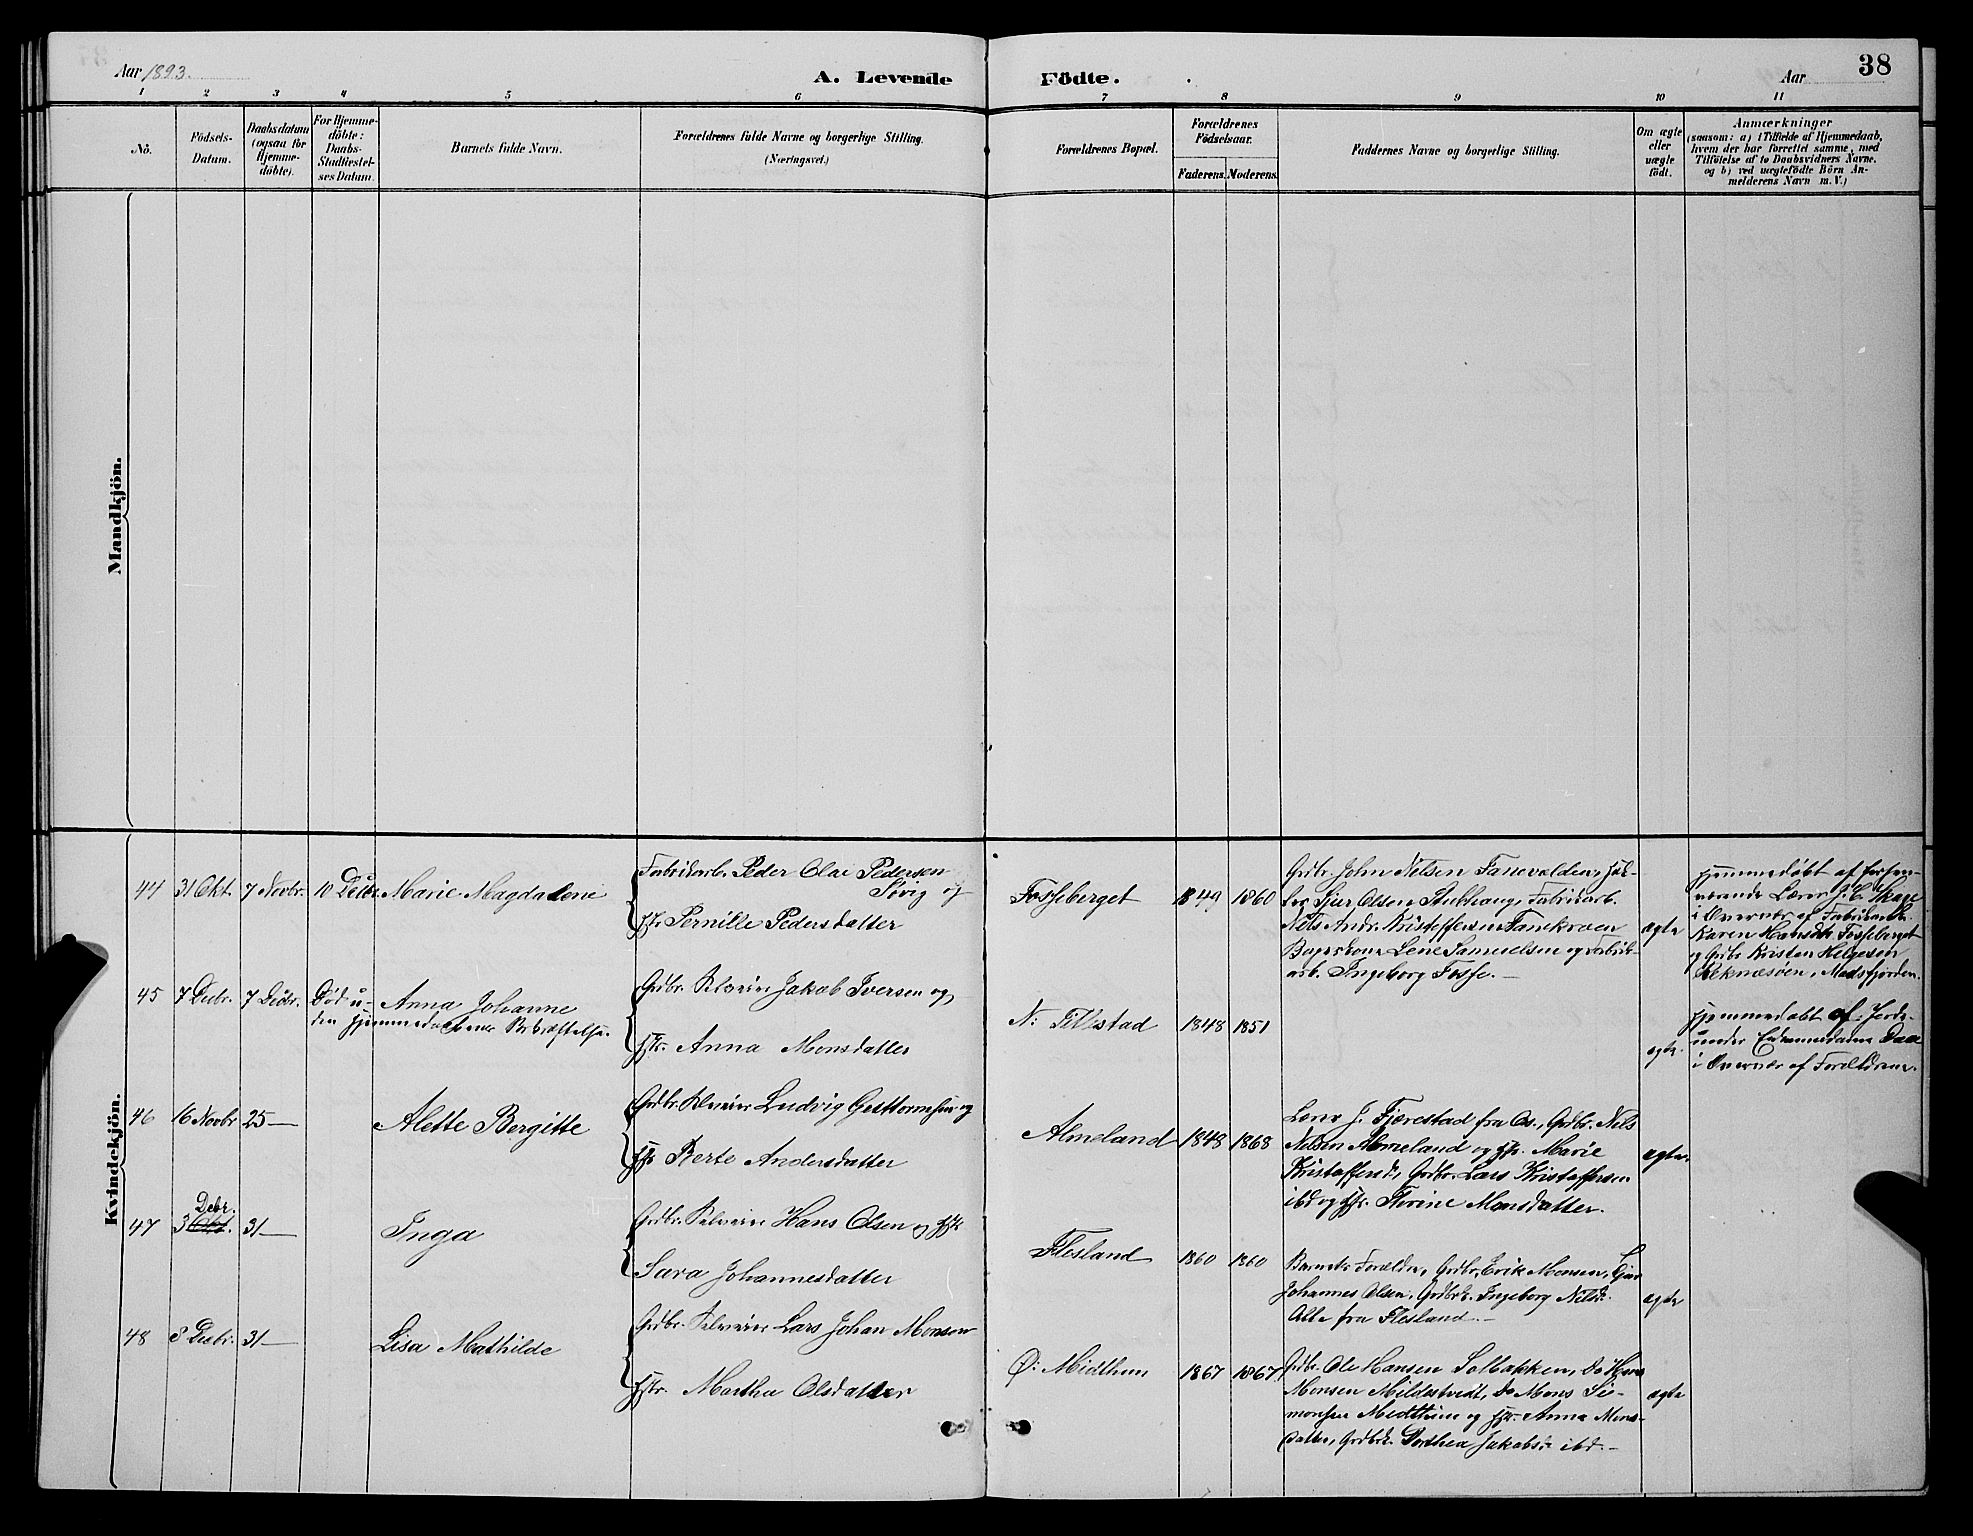 Aar 1893.
A. Levende
Födte.
Aar
38
1 2 3 4 5 6 7 8 9 10 11
Nö.
Födsels-Datum.
Daabsdatum (ogsaa for Hjemme-döbte).
For Hjemme-döbte: Daabs-Stadfæstel-ses Datum.
Barnets fulde Navn.
Forældrenes fulde Navne og borgerlige Stilling.
(Næringsvei.)
Forældrenes Bopæl.
Forældrenes Födselsaar.
Faderens. Moderens.
Faddernes Navne og borgerlige Stilling.
Om ægte eller uægte födt.
Anmærkninger
(saasom: a) i Tilfælde af Hjemmedaab,
hvem der har forrettet samme, med
Tilföielse af to Daabsvidners Navne.
og b) ved uægtefödte Börn An-
melderens Navn m. V.)
Mandkjön.
Kvindekjön.
44 31 Okt. 7 Novbr. 10 Decbr. Marie Magdalene
Fabrikarb. Peder Olai Pedersen
Søvig og
Hstr. Pernille Pedersdatter
Fosseberget 1849 1860
Grdbr. John Nielsen
Olsen Fabrikarb.
Nils Andr. Kristoffersen
Lene Samuelsen og Fabrik-
arb. Ingeborg Fosse. —
ægte
Hjemmedøbt af
Lærer J. C. Skage
i Overvær af Fabrikarb.
Karen Hansdtr. Fosseberget
og Grdbr. Kristen Helgesen
45 7 Decbr. 7 Decbr. Død u-
den Hjemmedaabens Bekræftelse.
Anna Johanne
Grdbr. Selveier Jakob Iversen og
Hstr. Anna Monsdatter
N: Titlestad 1848 1851
ægte.
Hjemmedøbt af Jorde-
moder Daae
i Overvær af Forældrene.
46 16 Novbr 25 —
Alette Bergitte
Grdbr. Selveier Ludvig Guttormsen og
Hstr Berte Andersdatter
Almeland 1848 1868
Lærer J. Fjærestad fra Os, Grdbr. Nils
Nilsen Almeland og Marie
Kristoffersd., Grdbr. Lars Kristoffersen
ibd og Florine Monsdatter.
ægte.
47 3 Decbr. Okt. 31 —
Inga
Grdbr. Selveier Hans Olsen og Hstr
Sara Johannesdatter
Flesland 1860 1860
Barnets Forældre, Grdbr. Erik Monsen,
Johannes Olsen, Ingeborg Nilsd.
Alle fra Flesland. —
ægte
48 8 Decbr. 31 —
Lisa Mathilde
Grdbr. Selveier Lars Johan Monsen
Hstr. Martha Olsdatter
Ø: Midthun 1867 1867
Grdbr. Ole Hansen Solbakken, Do Hans
Monsen Mildestveit, Do Mons Si-
monsen Midthun og Anna Mons-
datter, Dorthea Jakobsd. ibd —
ægte